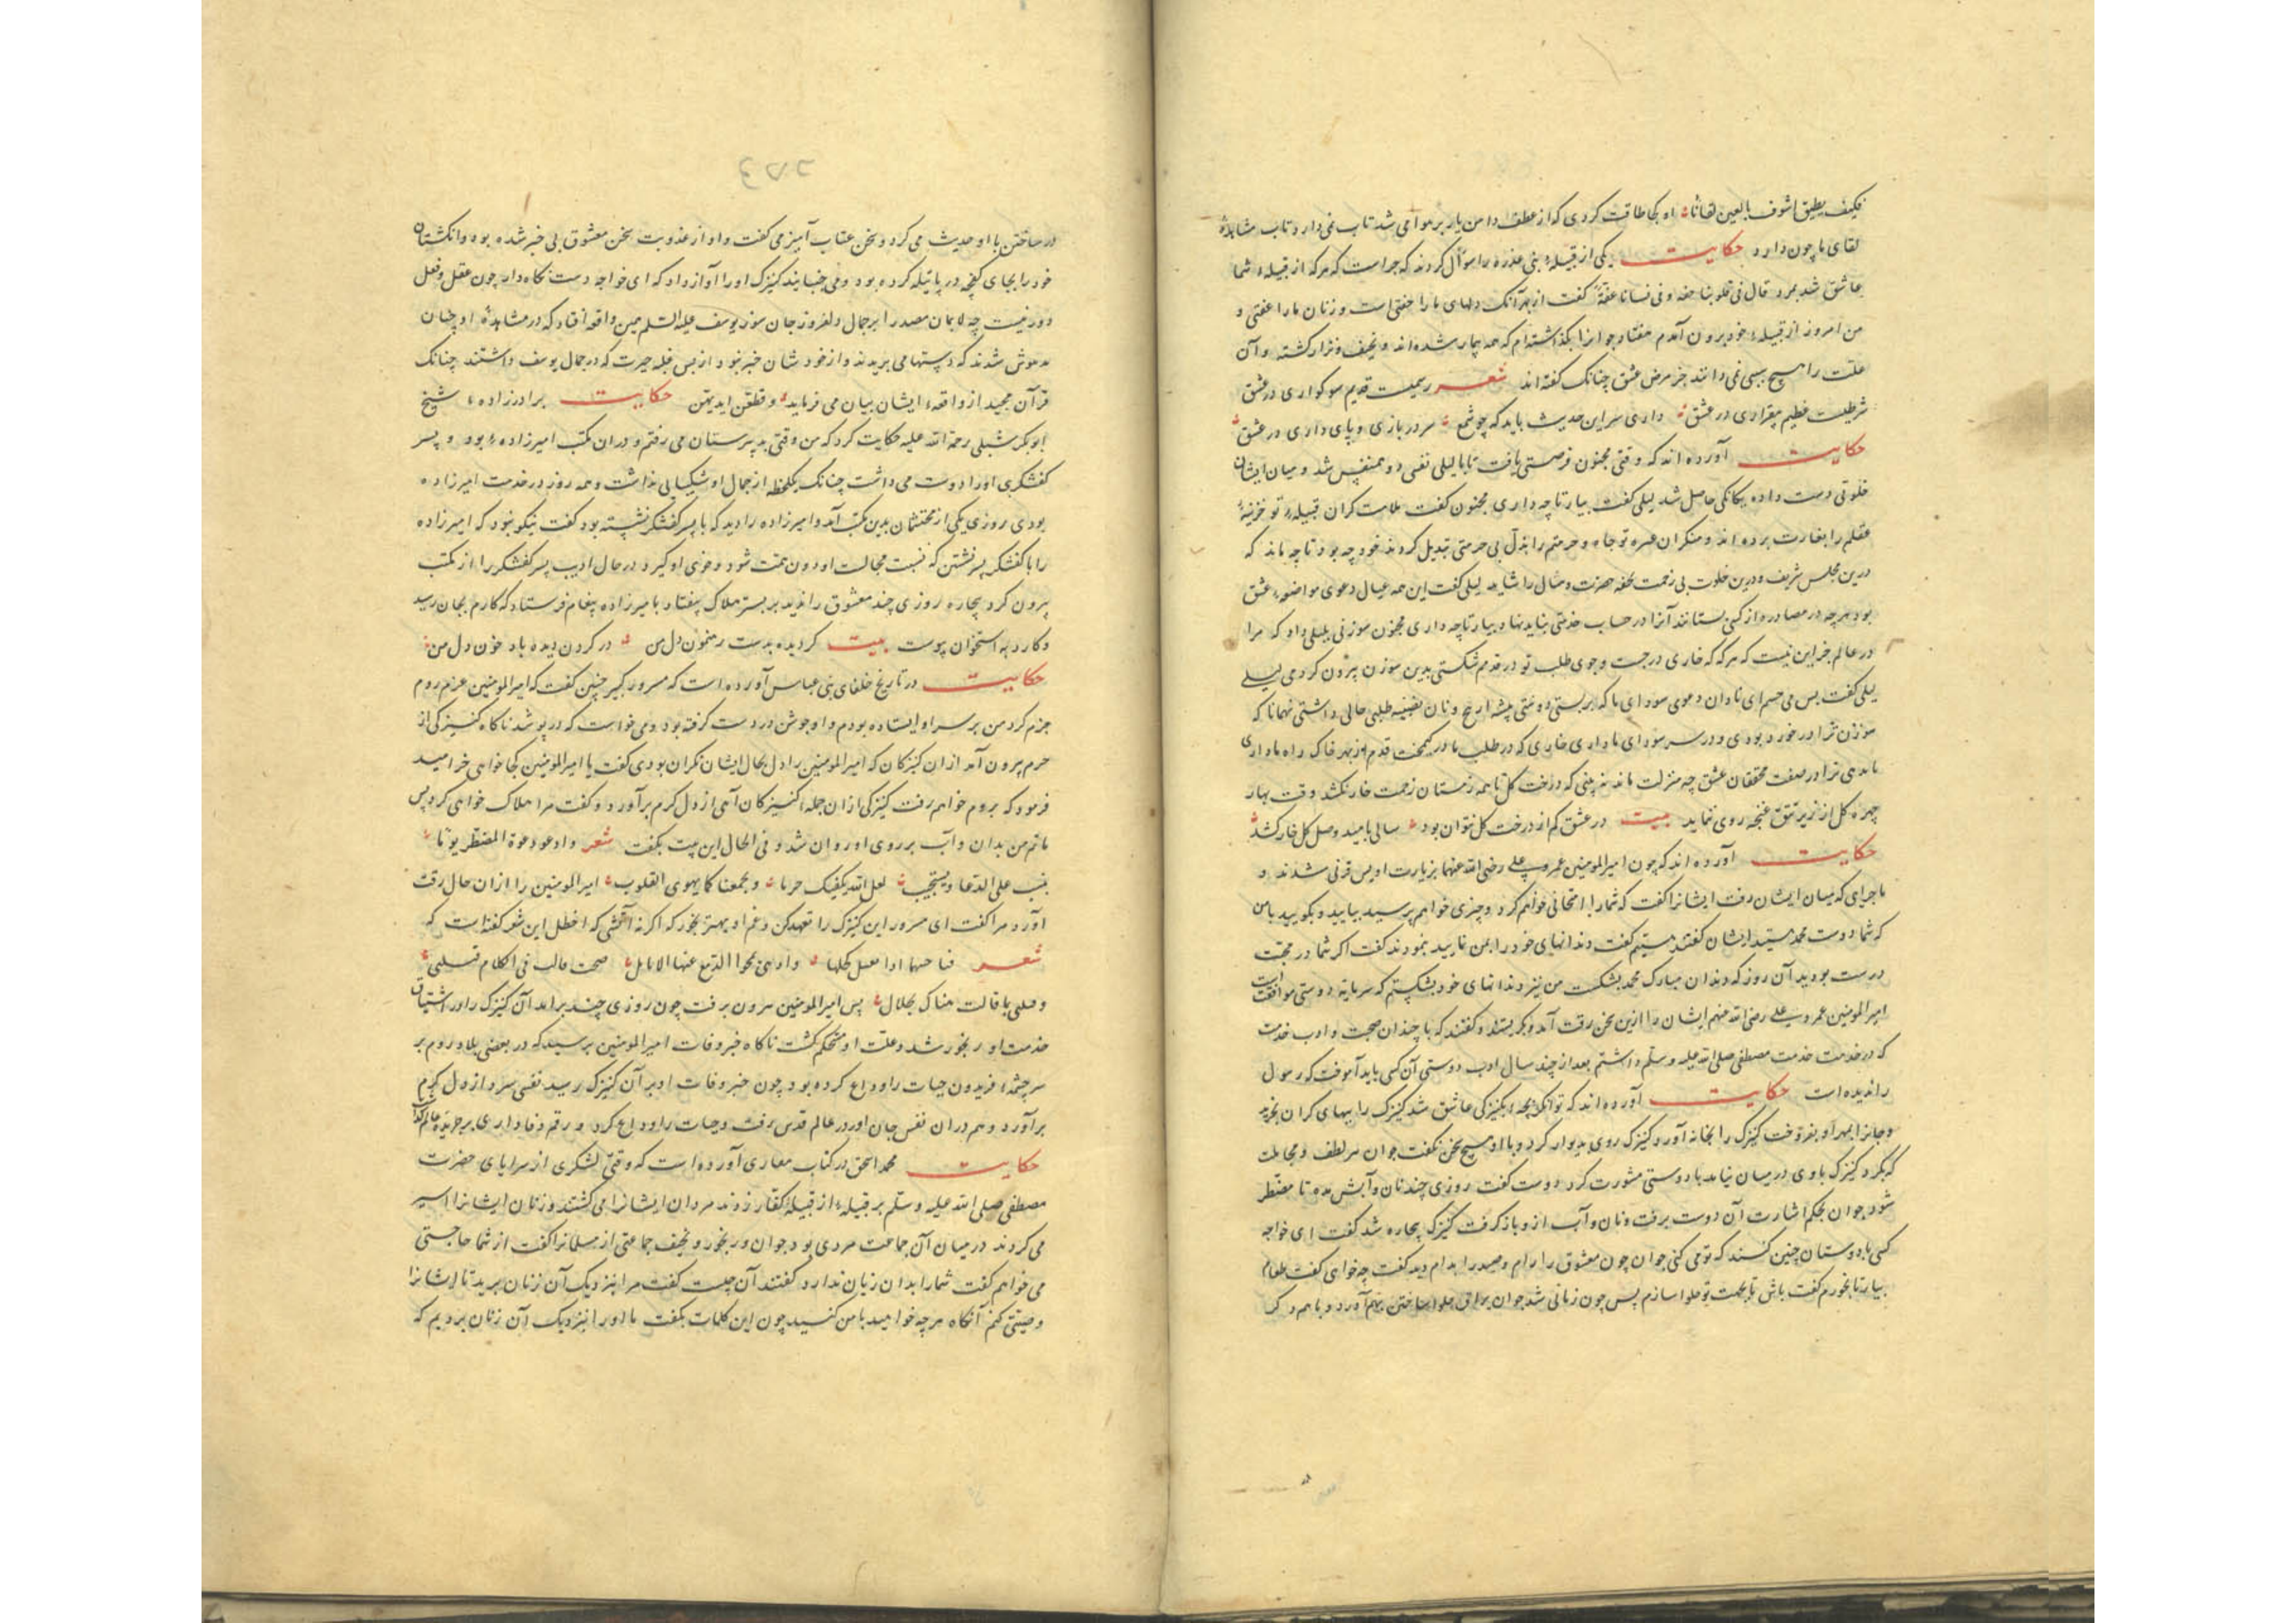 فکیف یطیق اشوف بالعین لقاناً او کجا طاقت کردی که از عطف دامن یار بر هوا می شد تاب نمی دارد تاب مشاهدهٔ
لقای ما چون دارد حکایت یکی از قبیلهٔ بنی عذره را سؤال کردند که چراست که هر که از قبیلهٔ شما
عاشق شد بمرد قال فی قلوبنا خفه و فی نسانا عفّة گفت از بهر آنک دلهای ما را خفتی است و زنان ما را عفتی و
من امروز از قبیلهٔ خود برون آمدم هفتاد جوانرا بگذاشته ام که همه بیمار شده اند و نحیف و نزار کشته و آن
علت را هیچ سببی نمی دانند جز مرض عشق چنانک گفته اند شعر رسمیست قدیم سوکواری در عشق
شرطیست عظیم بیقراری در عشق داری سر این حدیث باید که چو شمع سر در بازی و پای داری در عشق
حکایت آورده اند که وقتی مجنون فرصتی یافت تا با لیلی نفسی دو همنفس شد و میان ایشان
خلوتی دست داده یکانکی حاصل شد لیلی گفت بیار تا چه داری مجنون گفت ملامت کران قبیلهٔ تو خزینهٔ
عقلم را بغارت برده اند و منکران عشوه تو جاه و حرمتم را بذل بی حرمتی تبدیل کردند خود چه بود تا چه ماند که
درین مجلس شریف و درین خلوت بی زحمت تحفه حضرت وصال را شاید لیلی گفت این همه عیال دعوی مواضعهٔ عشق
بود هرچه در مصادره از کسی بستانند آنرا در حساب خدمتی نباید نهاد بیار تا چه داری مجنون سوزنی بلیلی داد که مرا
در عالم جز این نیست که هر که که خاری در جست و جوی طلب تو در قدمم شکستی بدین سوزن برون کردمی لیلی
لیلی گفت بس می جسم ای نادان دعوی سودای ما که بر بستی
سوزن ترا در خورد بودی و در سر سودای ما داری خاری که در طلب ما در قدم از بهر خاک راه ما داری
ما دهی ترا در صفت محققان عشق چه منزلت ماند نه بینی که درخت گل تا همه زمستان زحمت خار نکشد وقت بهار
چهرهٔ گل از زیر تتق غنچه روی ننماید بیت در عشق کم از درخت گل نتوان بود سالی بامید وصل گل خار کشد
حکایت آورده اند که چون امیرالمومنین عمر و علی رضی الله عنهما بزیارت اویس قرنی شدند و
ماجرای که میان ایشان رفت ایشانرا گفت که شما را امتحانی خواهم کرد و چیزی خواهم پرسید بیایید و بگویید با من
که شما دوست محمد هستید ایشان گفتند هستیم گفت دندانهای خود را بمن نمایید بنمودند گفت اگر شما در محبت
درست بودید آن روز که دندان مبارک محمد بشکست من نیز دندانهای خود بشکستم که سرمایه دوستی موافقت است
امیرالمومنین عمر و علی رضی الله عنهم ایشان را ازین سخن رقت آمد و بگریستند و گفتند که با چندان صحبت و ادب خدمت
که در خدمت خدمت مصطفی صلی الله علیه وسلم داشتم بعد از چند سال ادب دوستی آن کسی باید آموخت که رسول
را ندیده است حکایت آورده اند که توانکر بچهٔ بکنیزکی عاشق شد کنیزک را ببهای گران بخرید
و جانرا بمهر او بفروخت کنیزک را بخانه آورد کنیزک روی بدیوار کرد و با او هیچ سخن نگفت جوان هر لطف و مجاملت
که بکرد کنیزک باوی درمیان نیامد با دوستی مشورت کرد دوست گفت روزی چند نان و آبش مده تا مضطر
شود جوان بحکم اشارت آن دوست برفت و نان و آب از و باز گرفت کنیزک بیچاره شد گفت ای خواجه
کسی با دوستان چنین کند که تو می کنی جوان چون معشوق را رام و صید را بدام دید گفت چه خواهی گفت طعام
بیار تا بخورم گفت باش تا بجهت تو حلوا سازم پس چون زمانی شد جوان یراق حلوا ساختن بهم آورد و با هم در
در ساختن با او حدیث می کرد و سخن عتاب آمیز می گفت و او از عذوبت سخن معشوق بی خبر شده بود و انگشتان
خود را بجای کفچه در پاتیله کرده بود و می جنبانید کنیزک او را آواز داد که ای خواجه دست نگاه دار چون عقل و فعل
دور نیست چه لایمان مصر را بر جمال دلفروز جان سوز یوسف علیه السلم همین واقعه افتاد که در مشاهدهٔ او چنان
مدهوش شدند که دستها می بریدند و از خودشان خبر نبود از بس غلبه حیرت که در جمال یوسف داشتند چنانک
قرآن مجید از واقعهٔ ایشان بیان می فرماید و قطعن ایدیهن حکایت برادرزادهٔ شیخ
ابوبکر شبلی رحمة الله علیه حکایت کرد که من وقتی بدبیرستان می رفتم و دران مکتب امیرزادهٔ بود و پسر
کفشگری او را دوست می داشت چنانک یکلحظه از جمال او شکیبایی نداشت و همه روز در خدمت امیرزاده
بودی روزی یکی از محتشمان بدین مکتب آمد و امیرزاده را دید که با پسر کفشگر نشسته بود گفت نیکو نبود که امیرزاده
را با کفشگر پسر نشستن که نسبت مجالست او دون همت شود و خوی او گیرد در حال ادیب پسر کفشگر را از مکتب
بیرون کرد بیچاره روزی چند معشوق را ندید بر بستر هلاک بیفتاد بامیرزاده پیغام فرستاد که کارم بجان رسید
و کارد به استخوان پوست بیت کردیده بدست رهنمون دل من در گردن دیده باد خون دل من
حکایت در تاریخ خلفای بنی عباس آورده است که مسرور کبیر چنین گفت که امیرالمومنین عزم روم
جزم کرد من بر سر او ایستاده بودم و او جوشن در دست گرفته بود و می خواست که در پوشد ناگاه کنیزکی از
حرم بیرون آمد از ان کنیزکان که امیرالمومنین را دل بحال ایشان نگران بودی گفت یا امیرالمومنین کجا خواهی خرامید
فرمود که بروم خواهم رفت کنیزکی از ان جمله کنیزکان آهی از دل گرم برآورد و گفت مرا هلاک خواهی کرد پس
ماتم من بدان و آب بر روی او روان شد و فی الحال این بیت بگفت شعر وادعو دعوة المضطر یوما
یثیب علی الدعا و یستجیب لعل الله یکفیک حربا و یجمعنا کما یهوی القلوب امیرالمومنین را ازان حال رقت
آورد مرا گفت ای مسرور این کنیزک را تعهد کن و غم او بهتر بخور که اگر نه آنستی که اخطل این شعر گفته است که
شعر
پس امیرالمومنین بیرون برفت چون روزی چند برآمد آن کنیزک را در اشتیاق
خدمت او رنجور شد و علت او مستحکم گشت ناگاه خبر وفات امیرالمومنین برسید که در بعضی بلاد روم بر
سر چشمهٔ فریدون حیات را وداع کرده بود چون خبر وفات او بر آن کنیزک رسید نفسی سرد از دل گرم
برآورد و هم در ان نفس جان او در عالم قدس برفت و حیات را وداع کرد و رقم وفاداری بر جریدهٔ عالم
حکایت محمد اسحق در کتاب مغازی آورده است که وقتی لشکری از سرایای حضرت
مصطفی صلی الله علیه وسلم بر قبیلهٔ از قبیلهٔ کفار زدند مردان ایشانرا می کشتند و زنان ایشانرا اسیر
می کردند در میان آن جماعت مردی بود جوان و رنجور و نحیف جماعتی از مسلمانرا گفت از شما حاجتی
می خواهم گفت شما را بدان زیان ندارد گفتند آن چیست گفت مرا بنزدیک آن زنان برید تا ایشانرا
وصیتی کنم آنگاه هرچه خواهید با من کنید چون این کلمات بگفت ما او را بنزدیک آن زنان بردیم که